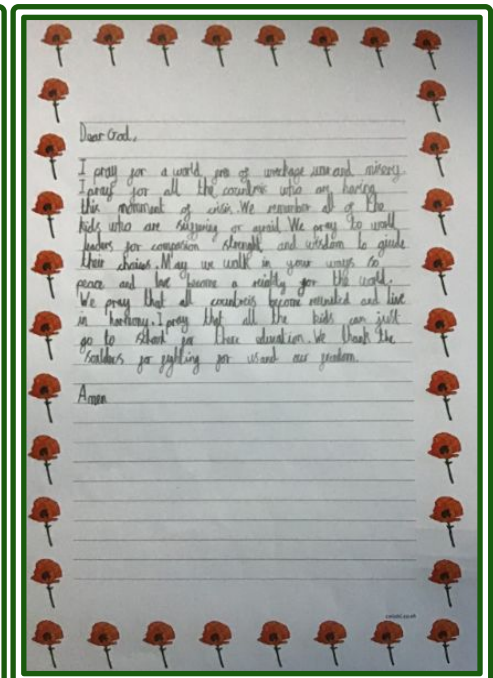 Dear God,
I pray for a world free of wreckage war and misery.
I pray for all the countries who are having
this momment of crisis. We remember all of the
kids who are suffering or afraid. We pray to world
leaders for compassion strenght, and wisdom to giude
their choices. May we walk in your ways so
peace and love become a reality for the world.
We pray that all countreis become reunited and live
in harmony. I pray that all the kids can just
go to school for there education. We thank the
soilders for fighting for us and our freedom.
Amen